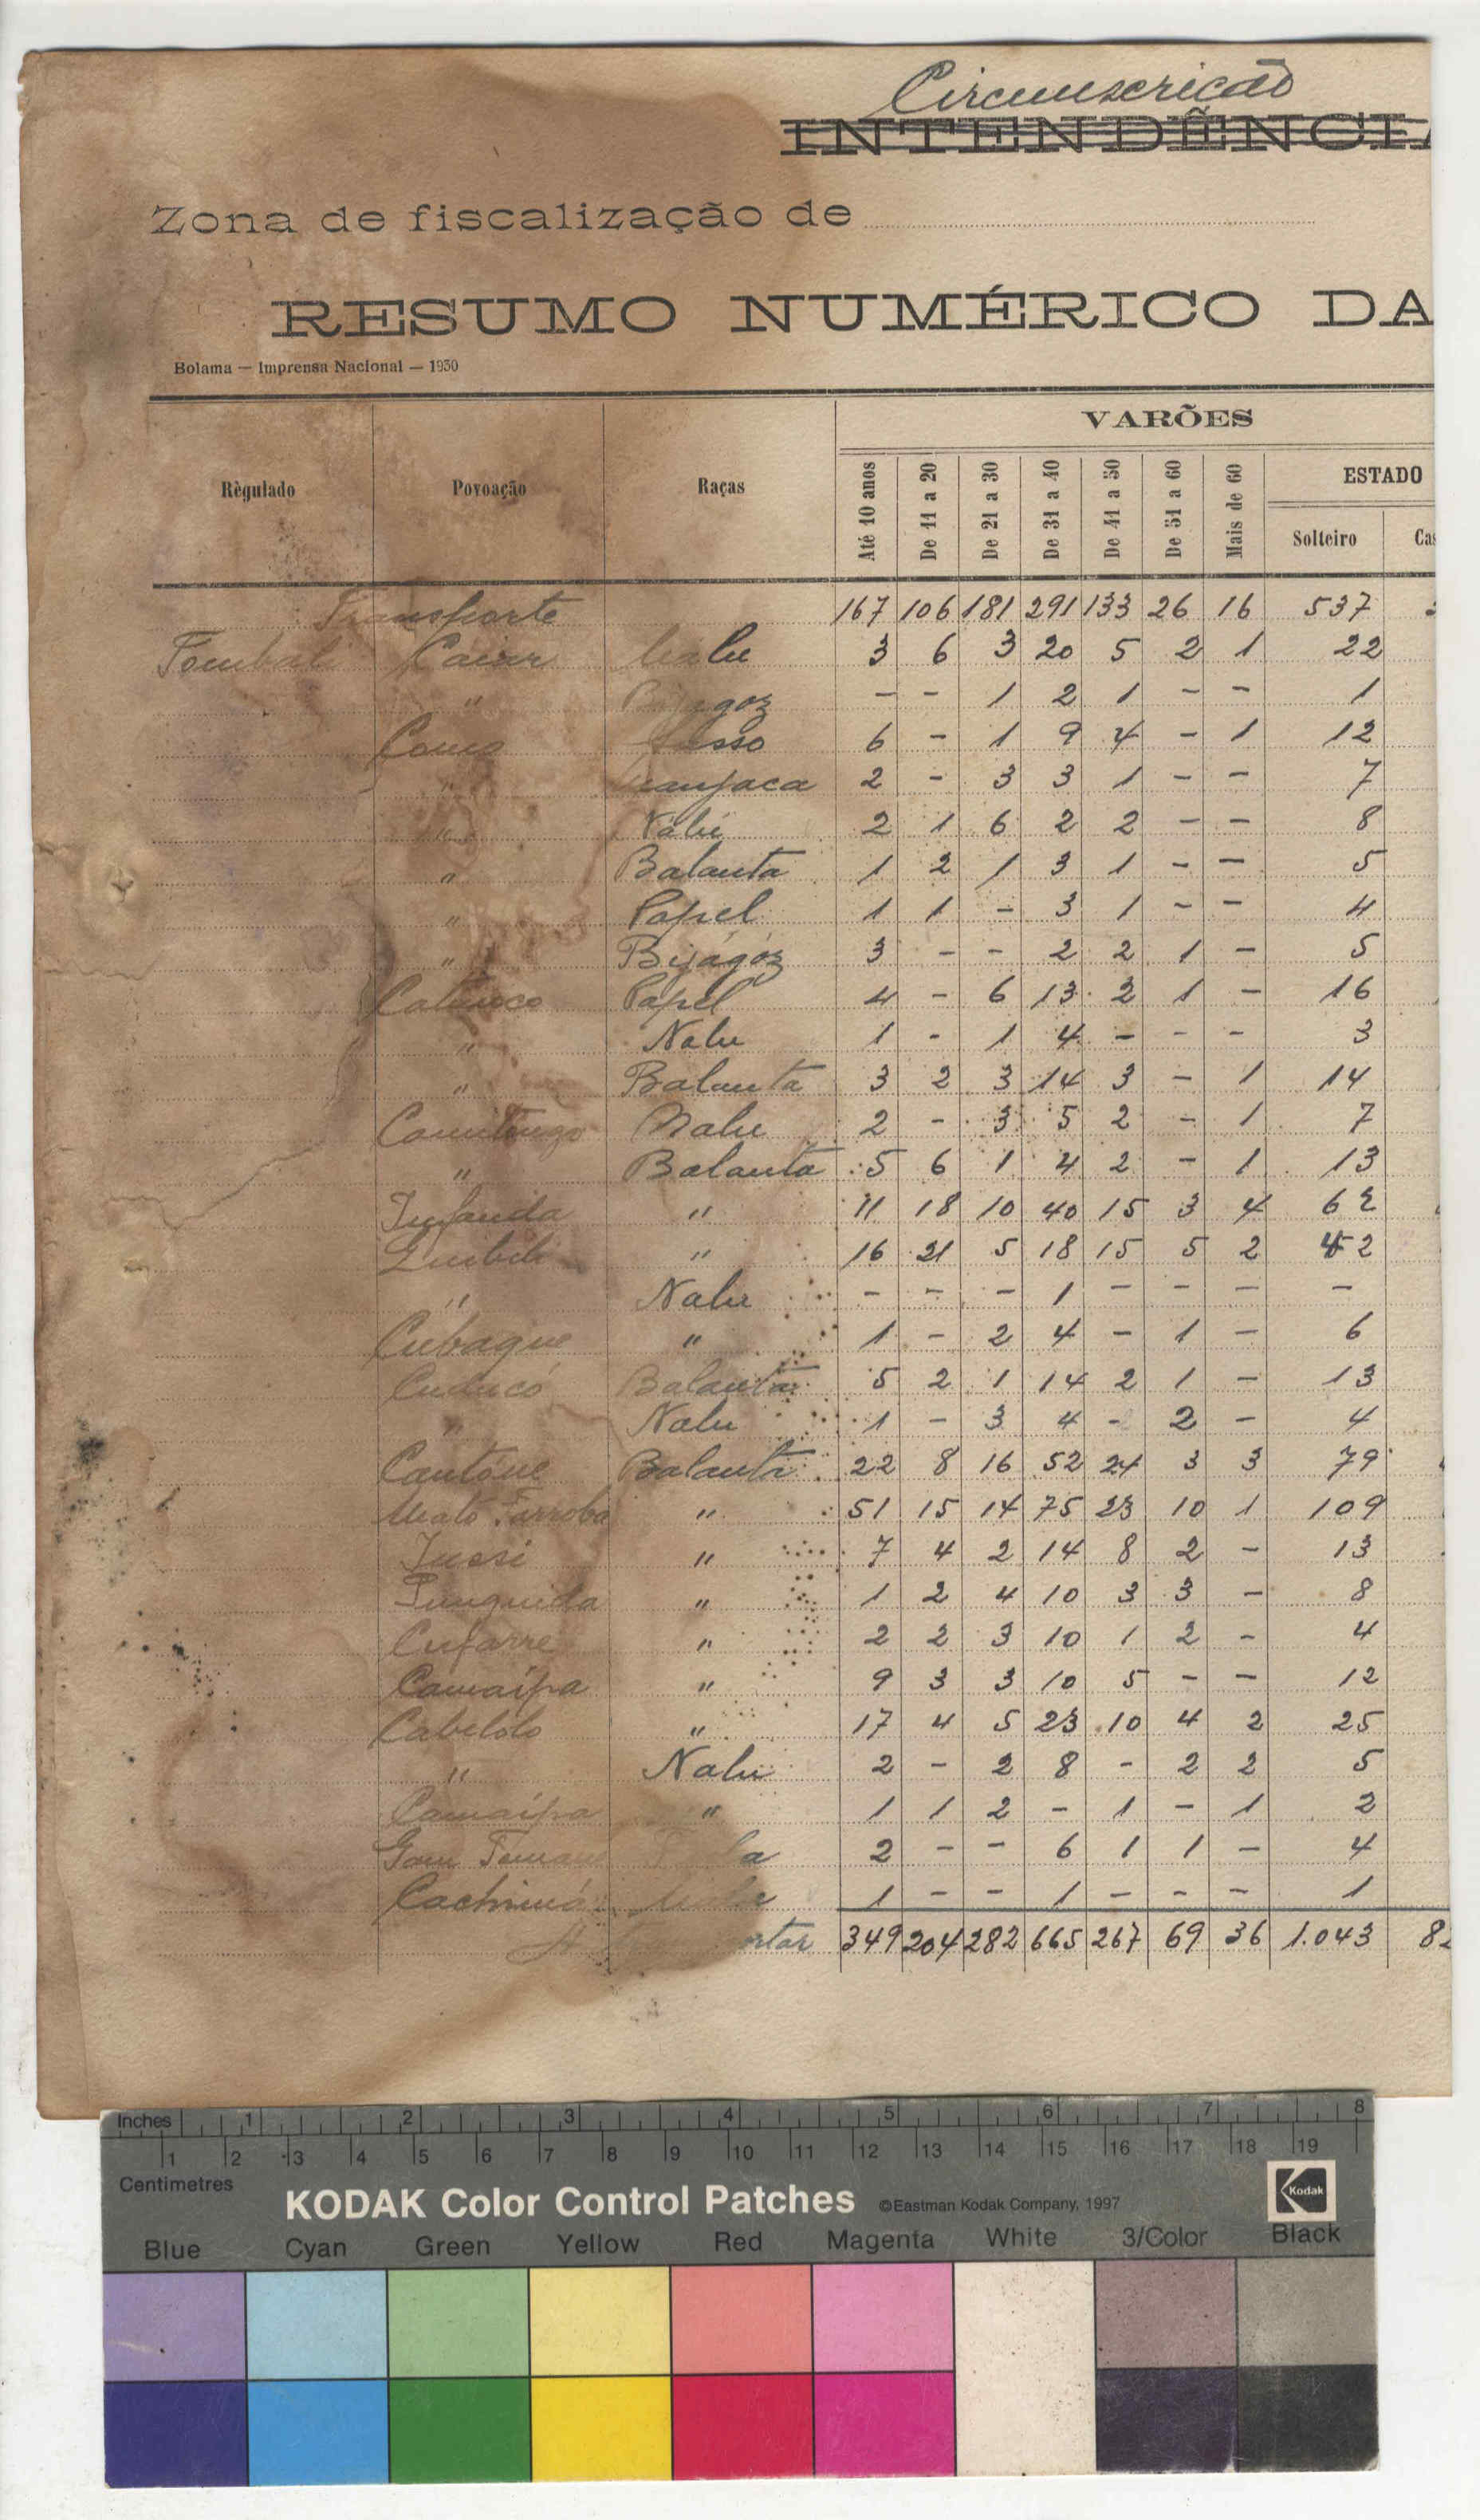 Circunscricão
INTENDÊNCIA
Zona de fiscalização de
RESUMO NUMÉRICO DA
Bolama — Imprensa Nacional — 1930
VARÕES
Règulado Povoação Raças Até 10 anos De 11 a 20 De 21 a 30 De 31 a 40 De 41 a 50 De 51 a 60 Mais de 60 ESTADO
Solteiro Cas
Transporte 167 106 181 291 133 26 16 537
Tombali Caiar Nalu 3 6 3 20 5 2 1 22
" Bijagoz - - 1 2 1 - - 1
Como Sosso 6 - 1 9 4 - 1 12
" Manjaca 2 - 3 3 1 - - 7
" Nalú 2 1 6 2 2 - - 8
" Balanta 1 2 1 3 1 - - 5
" Papel 1 1 - 3 1 - - 4
" Bijágóz 3 - - 2 2 1 - 5
Papel 4 - 6 13 2 1 - 16
" Nalu 1 - 1 4 - - - 3
" Balanta 3 2 3 14 3 - 1 14
Nalu 2 - 3 5 2 - 1 7
" Balanta 5 6 1 4 2 - 1 13
" 11 18 10 40 15 3 4 62
" 16 21 5 18 15 5 2 42
" Nalu - - - 1 - - - -
Cubaque " 1 - 2 4 - 1 - 6
Balanta 5 2 1 14 2 1 - 13
" Nalu 1 - 3 4 - 2 - 4
Cantóne Balanta 22 8 16 52 24 3 3 79
Mato Farroba " 51 15 14 75 23 10 1 109
" 7 4 2 14 8 2 - 13
" 1 2 4 10 3 3 - 8
Cufarre " 2 2 3 10 1 2 - 4
Camaipa " 9 3 3 10 5 - - 12
Cabelolo " 17 4 5 23 10 4 2 25
" Nalu 2 - 2 8 - 2 2 5
Camaipa " 1 1 2 - 1 - 1 2
2 - - 6 1 1 - 4
Nalu 1 - - 1 - - - 1
A 349 204 282 665 267 69 36 1.043 82
Inches 1 2 3 4 5 6 7 8
1 2 3 4 5 6 7 8 9 10 11 12 13 14 15 16 17 18 19
Centimetres
KODAK Color Control Patches ©Eastman Kodak Company, 1997 Kodak
Blue Cyan Green Yellow Red Magenta White 3/Color Black